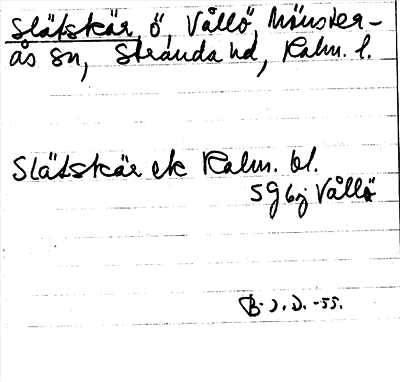 Slätskär, ö, Vållö, Mönster-
ås sn, Stranda hd, Kalm. l.
Slätskär ek Kalm. bl.
5g6j Vållö
B. J. D. -55.